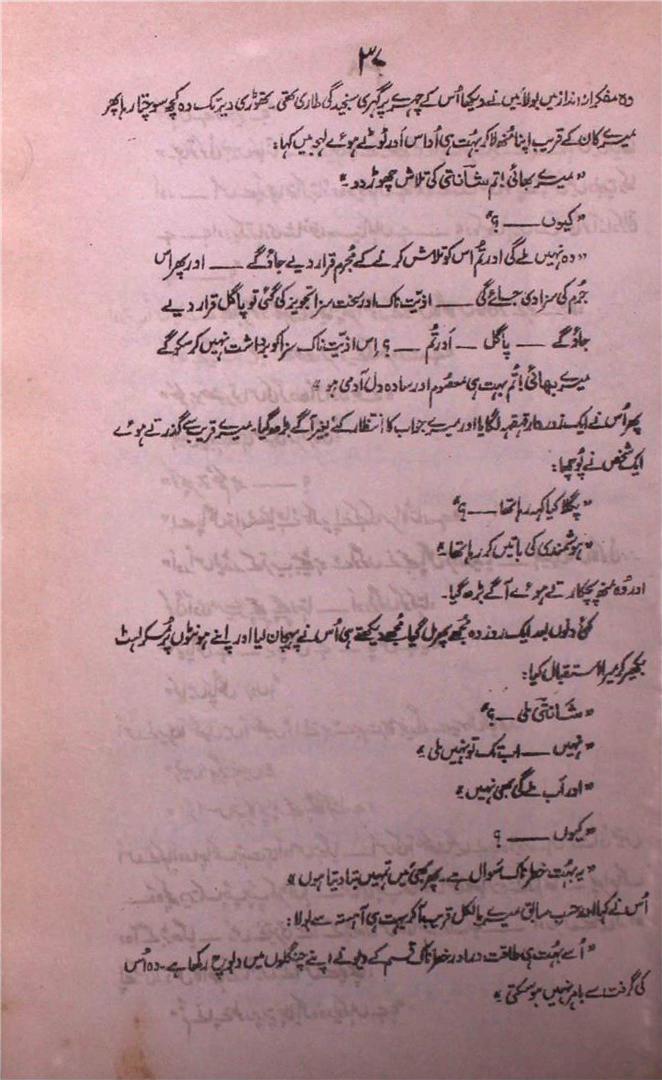 ۳۷
وہ مفکرانہ انداز میں بولا میں نے دیکھا اُس کے چہرے پر گہری سنجیدگی طاری تھی۔ تھوڑی دیر تک وہ کچھ سوچتا رہا پھر
میرے کان کے قریب اپنا مُنھ لا کر بہت ہی اُداس اَور ٹوٹے ہوئے لہجہ میں کہا:
”میرے بھائی! تم شانتی کی تلاش چھوڑ دو۔“
”کیوں —— ؟“
”وہ نہیں ملے گی اور تُم اس کو تلاش کرنے کے مُجرم قرار دیے جاؤ گے —— اور پھر اس
جُرم کی سزا دی جائے گی —— اذیت ناک اور سخت سزا تجویز کی گئی تو پاگل قرار دیے
جاؤ گے —— پاگل — اَور تُم — ؟ اِس اذیّت ناک سزا کو برداشت نہیں کر سکو گے
میرے بھائی! تُم بہت ہی معصُوم اور سادہ دِل آدمی ہو۔“
پھر اُس نے ایک زور دار قہقہہ لگایا اور میرے جواب کا انتظار کئے بغیر آگے بڑھ گیا۔ میرے قریب سے گذرتے ہوئے
ایک شخص نے پُوچھا:
”پگلا کیا کہہ رہا تھا —— ؟“
”ہوشمندی کی باتیں کر رہا تھا۔“
اور وُہ مُنھ پچکارتے ہوئے آگے بڑھ گیا۔
کئی دِنوں بعد ایک روز وہ مُجھے پھر مل گیا۔ مُجھے دیکھتے ہی اُس نے پہچان لیا اور اپنے ہونٹوں پر مُسکراہٹ
بکھیر کر میرا استقبال کیا:
”شانتی ملی — ؟“
”نہیں —— اب تک تو نہیں ملی۔“
”اور اَب ملے گی بھی نہیں۔“
”کیوں —— ؟
”یہ بہُت خطرناک سَوال ہے۔ پھر بھی میں تمہیں بتا دیتا ہوں۔“
اُس نے کہا اور حسبِ سابق میرے بالکل قریب آ کر بہت ہی آہستہ سے بولا:
”اُسے بہُت ہی طاقت ور اور خطرناک قسم کے دیو نے اپنے چنگلوں میں دبوچ رکھا ہے۔ وہ اُس
کی گرفت سے باہر نہیں ہو سکتی۔“